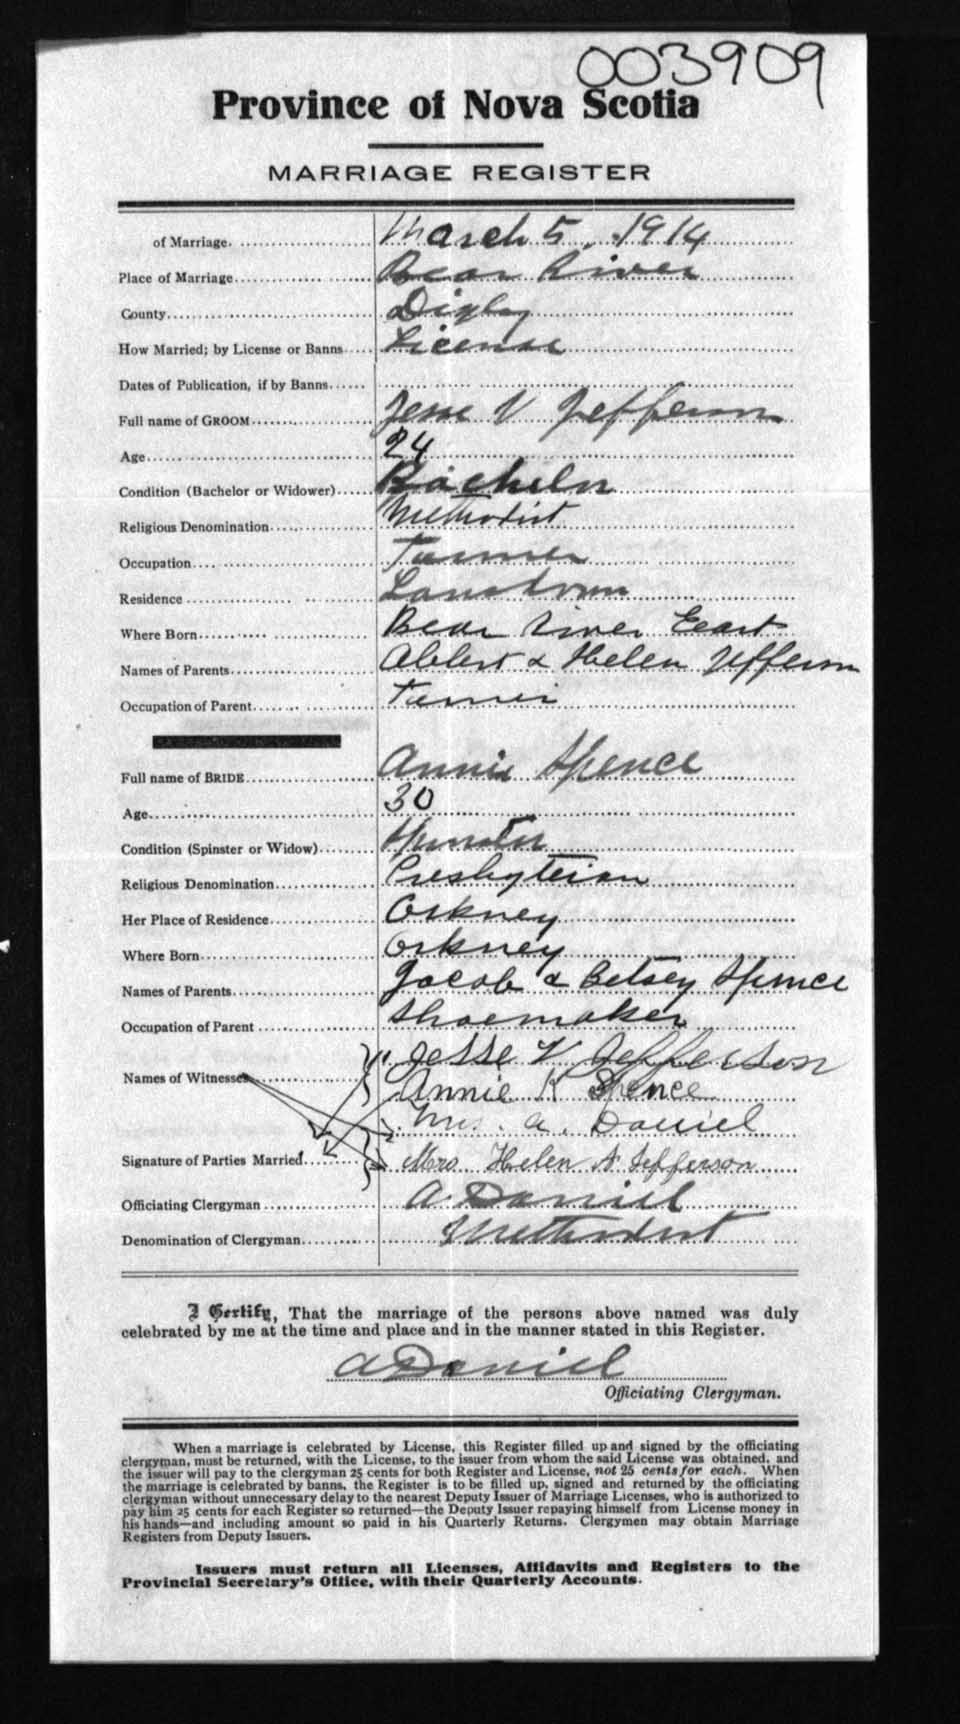 003909
Province of Nova Scotia
MARRIAGE REGISTER
of Marriage. March 5, 1914
Place of Marriage Bear River
County Digby
How Married; by License or Banns License
Dates of Publication, if by Banns
Full name of GROOM Jesse V Jefferson
Age 24
Condition (Bachelor or Widower) Bachelor
Religious Denomination Methodist
Occupation Farmer
Residence Lansdown
Where Born Bear River East
Names of Parents Albert & Helen Jefferson
Occupation of Parent Farmer
Full name of BRIDE Annie Spence
Age 30
Condition (Spinster or Widow) Spinster
Religious Denomination Presbyterian
Her Place of Residence Orkney
Where Born Orkney
Names of Parents Jacob & Betsey Spence
Occupation of Parent Shoemaker
Jesse V Jefferson
Names of Witnesses Annie K Spence
Mrs. A. Daniel
Signature of Parties Married Mrs Helen A Jefferson
Officiating Clergyman A Daniel
Denomination of Clergyman Methodist
I Certify, That the marriage of the persons above named was duly
celebrated by me at the time and place and in the manner stated in this Register.
A Daniel
Officiating Clergyman.
When a marriage is celebrated by License, this Register filled up and signed by the officiating
clergyman, must be returned, with the License, to the issuer from whom the said License was obtained, and
the issuer will pay to the clergyman 25 cents for both Register and License, not 25 cents for each. When
the marriage is celebrated by banns, the Register is to be filled up, signed and returned by the officiating
clergyman without unnecessary delay to the nearest Deputy Issuer of Marriage Licenses, who is authorized to
pay him 25 cents for each Register so returned—the Deputy Issuer repaying himself from License money in
his hands—and including amount so paid in his Quarterly Returns. Clergymen may obtain Marriage
Registers from Deputy Issuers.
Issuers must return all Licenses, Affidavits and Registers to the
Provincial Secretary's Office, with their Quarterly Accounts.